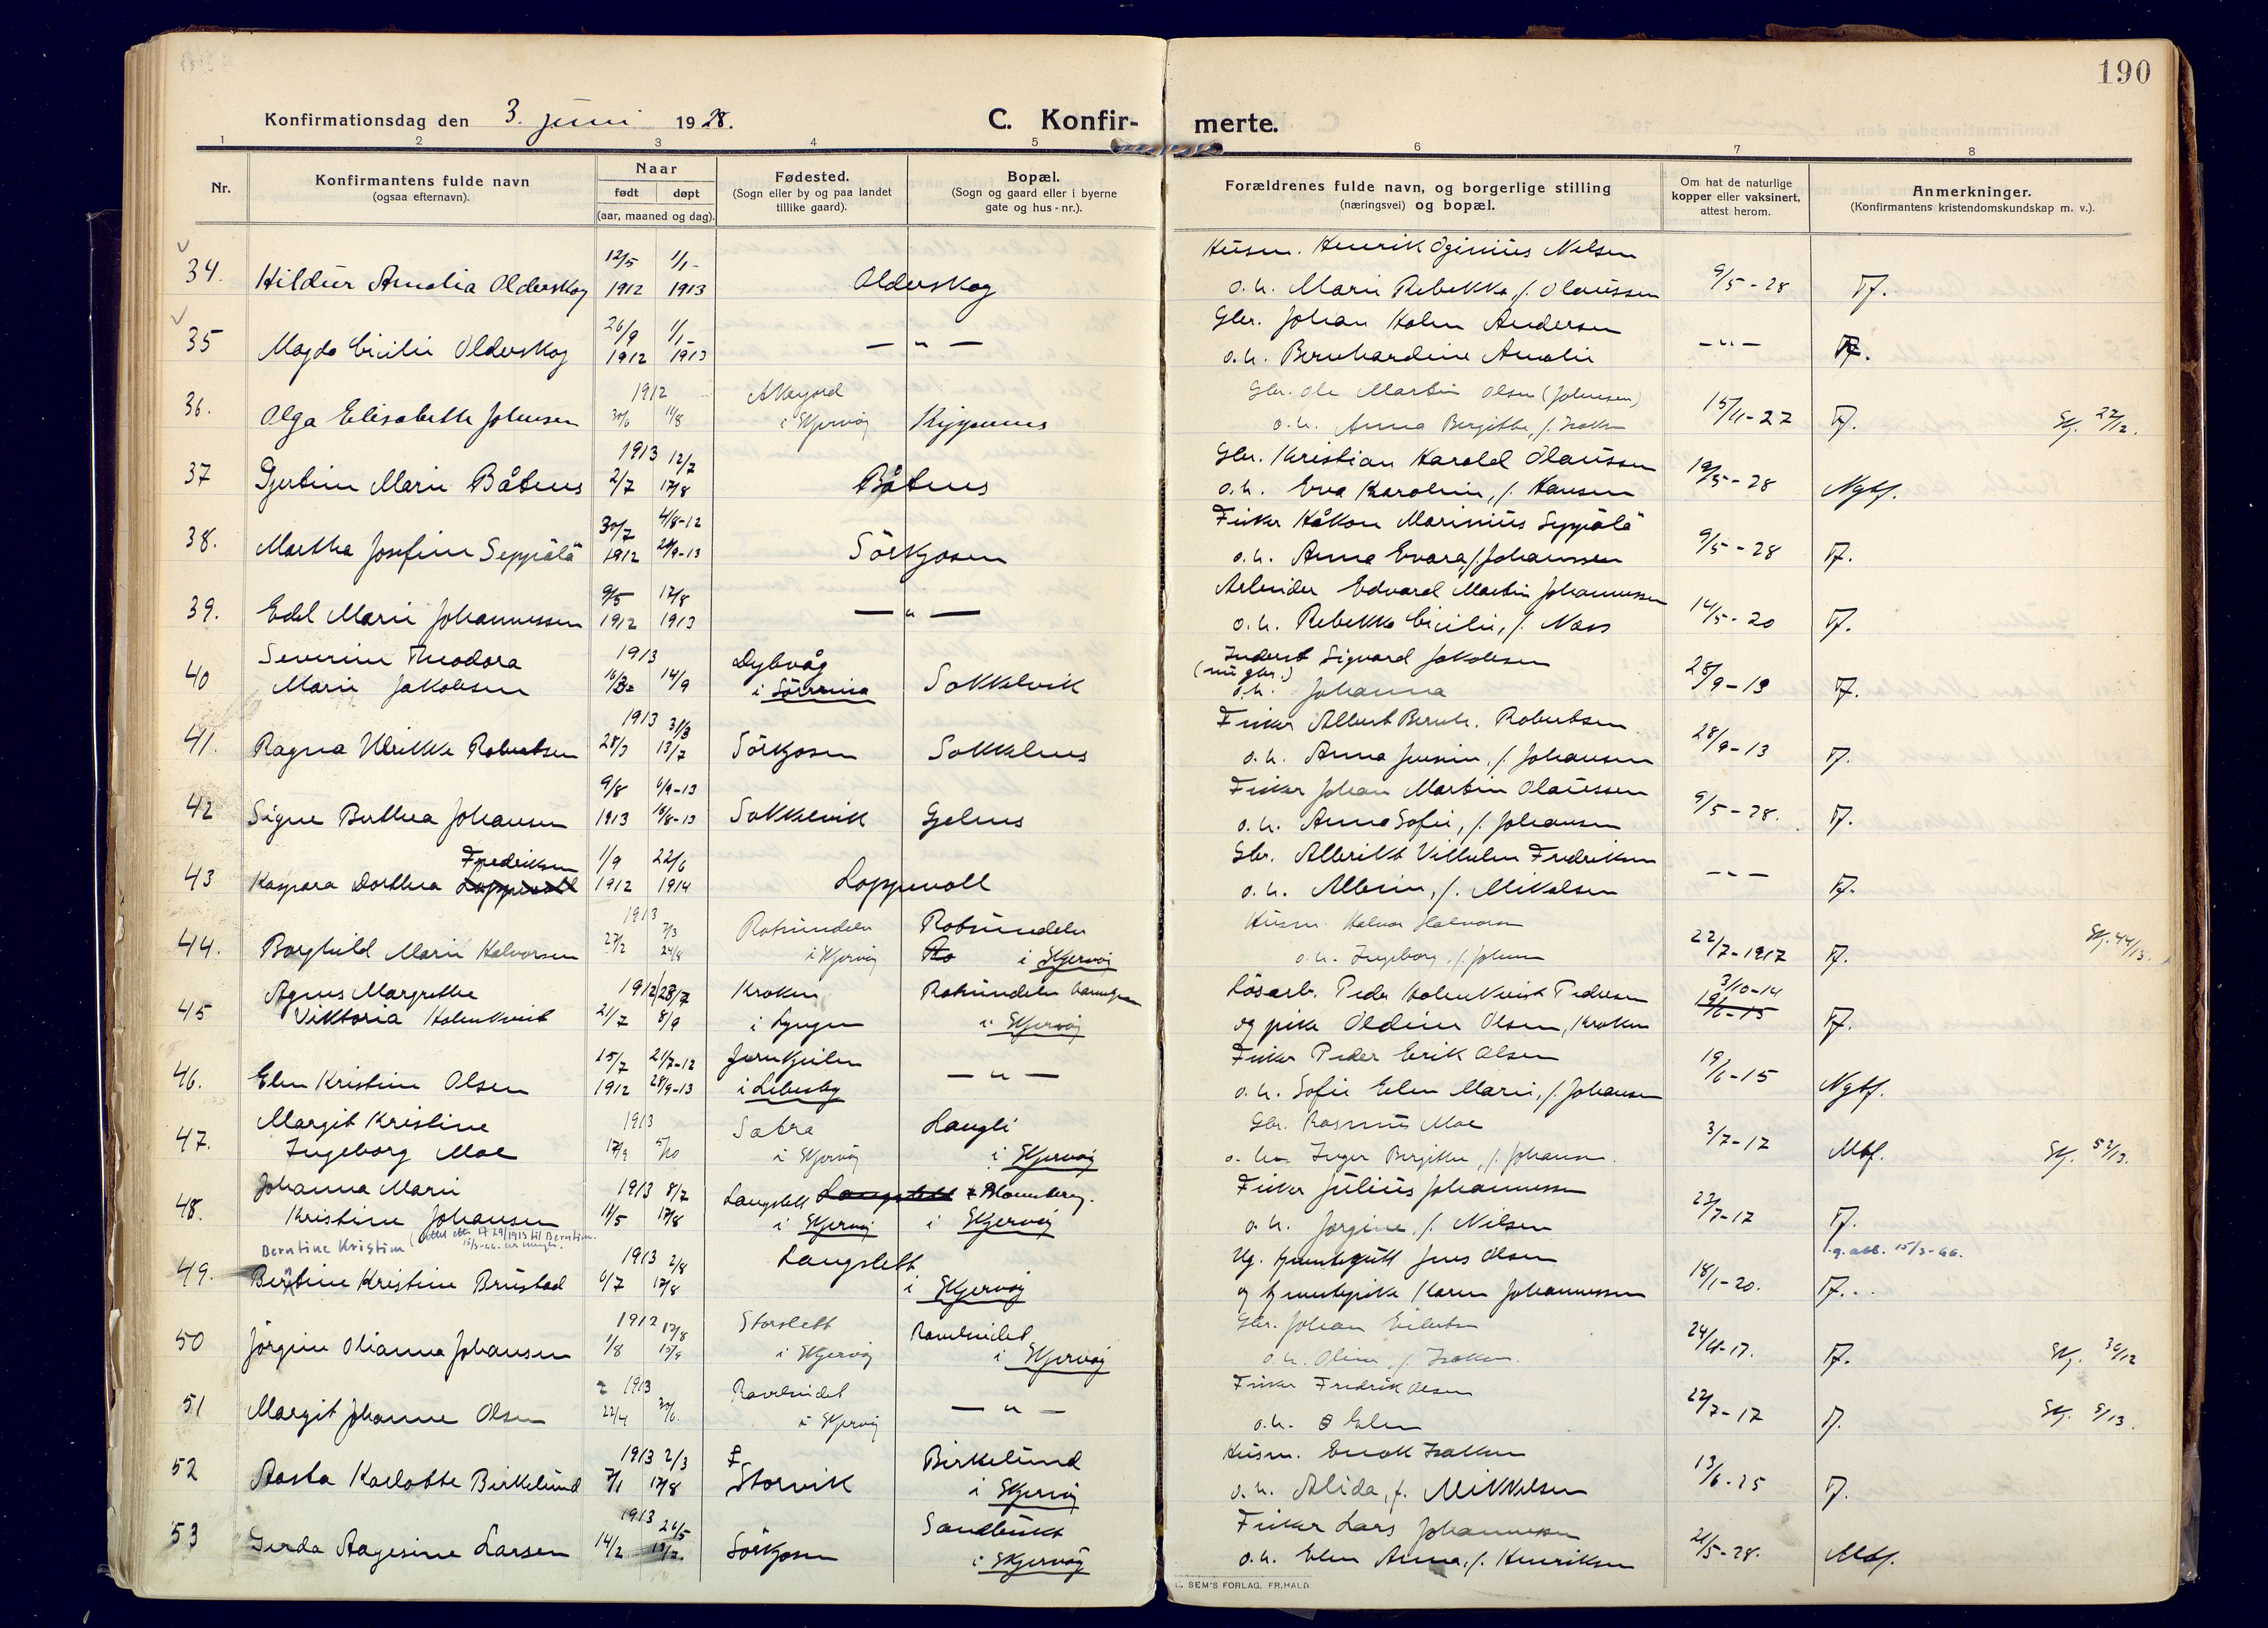 190
Konfirmationsdag den 3. juni 1928.
C. Konfir- merte.
1 2 3 4 5 6 7 8
Nr.
Konfirmantens fulde navn
(ogsaa efternavn).
Naar
født døpt
(aar, maaned og dag).
Fødested.
(Sogn eller by og paa landet
tillike gaard).
Bopæl.
(Sogn og gaard eller i byerne
gate og hus-nr.).
Forældrenes fulde navn, og borgerlige stilling
(næringsvei) og bopæl.
Om hat de naturlige
kopper eller vaksinert,
attest herom.
Anmerkninger.
(Konfirmantens kristendomskundskap m. v.).
12/5 1/1- Husm. Henrik Oginius Nilsen
34. Hildur Amalia Olderskog 1912 1913 Olderskog o. h. Marie Rebekka, f. Olaussen 9/5-28 Tf.
26/9 1/1- Gbr. Johan Holm Andersen
35 Magda Cicilie Olderskog 1912 1913 — " — o. h. Bernhardine Amalie — " — Tf.
1912 Gbr. Ole Martin Olsen (Johnsen)
36. Olga Elisabeth Johnsen 30/6 11/8 i Skjervøy o. h. Anna Bergitte, f. Isaksen 15/11-27 Tf. Skj. 27/12.
1913 12/7 Gbr. Kristian Harald Olaussen
37 Gjertine Marie Båtnes 2/7 17/8 Båtnes o. h. Eva Karoline, f. Hansen 19/5-28 Ngtf.
30/7 4/8-12 Fisker Håkon Marinius Seppälä
38. Martha Josefine Seppälä 1912 28/9-13 Sörkjosen o. h. Anna Evara, f. Johanssen 9/5-28 Tf.
9/5 17/8 Arbeider Edvard Martin Johannessen
39. Edel Marie Johannessen 1912 1913 — " — o. h. Rebekka Cicilie, f. Næss 14/5-20 Tf.
Severine Theodora 1913 Dybvåg Inderst Sigvard Jakobsen
(nu gbr.)
40 Marie Jakobsen 14/9 i Sörreisa Sokkelvik o. h. Johanna 28/9-13 Tf.
1913 31/3 Fisker Albert Bernh. Robertsen
41. Ragna Ulrikke Robertsen 28/3 13/7 Sörkjosen Sokkelnes o. h. Anna Jensine, f. Johansen 28/9-13 Tf.
9/8 6/9-13 Fisker Johan Martin Olaussen
42 Signe Berthea Johansen 1913 Sokkelvik Gjelnes o. h. Anna Sofie, f. Johansen 9/5-28. Tf.
Fredriksen 1/9 22/6 Gbr. Albrikt Vilhelm Fredriksen
43 Kaspara Dorthea Loppevoll 1912 1914 Loppevoll o. h. Albrine, f. Mikalsen — " — Tf.
1913 7/3 Rotsundelv Rotsundelv Husm. Halvor Halvorsen
44. Borghild Marie Halvorsen 27/2 24/8 i Skjervøy Ro i Skjervøy o. h. Ingeborg, f. Johnsen 22/7-1917 Tf. Skj. 44/13.
Agnes Margrethe 1912 28/7 Kroken Rotsundelv Lösarb. Peder Holmkvist Pedersen 3/10-14
45 Viktoria Holmkvist 21/7 8/9 i Lyngen i Skjervøy og pike Oldine Olsen, Kroken 19/6-15 Tf.
15/7 21/7-12 Jernkjeilen Fisker Peder Erik Olsen
46. Elen Kristine Olsen 1912 28/9-13 i Lebesby — " — o. h. Sofie Elen Marie, f. Johansen 19/6-15 Ngtf.
Margit Kristine 1913 Sætra Langli Gbr. Rasmus Moe
47. Ingeborg Moe 17/9 5/10 i Skjervøy i Skjervøy o. h. Inger Birgitte, f. Johansen. 3/7-17 Mtf. Skj. 52/13.
Johanna Marie 1913 8/7 Langslett Langslett Blomsterng. Fisker Julius Johannessen
48. Kristine Johansen 11/5 17/8 i Skjervøy i Skjervøy o. h. Jørgine, f. Nilsen 23/7-17 Tf.
Berntine Kristine 1913 2/8 Langslett Ug. tjenestegutt Jens Olsen l.g. att. 15/3-66.
49. Berntine Kristine Brustad 6/7 17/8 i Skjervøy og tjenestepike Karen Johannessen 18/1-20. Tf.
1912 17/8 Storslett Ravelseidet Gbr. Johan Eilertsen
50 Jörgine Olianna Johansen 1/8 15/9 i Skjervøy i Skjervøy o. h. Oline, f. Isaksen. 24/11-17. Tf. Skj. 36/12
1913 Ravelseidet Fisker Fredrik Olsen
51 Margit Johanne Olsen 22/4 30/6. i Skjervøy — " — o. h. Elen 22/7-17 Tf. Skj. 5/13.
1913 2/3 Birkelund Husm. Enok Isaksen
52 Aasta Karlotte Birkelund 7/1 17/8 Storvik i Skjervøy o. h. Alida, f. Mikkelsen 13/6-25 Tf.
1913 26/5 Sandbukt Fisker Lars Johannessen
53 Gerda Aagesine Larsen 14/2 13/7. Sörkjosen i Skjervøy o. h. Elen Anna, f. Henriksen 21/5-28. Mtf.
SEM'S FORLAG, FR.HALD